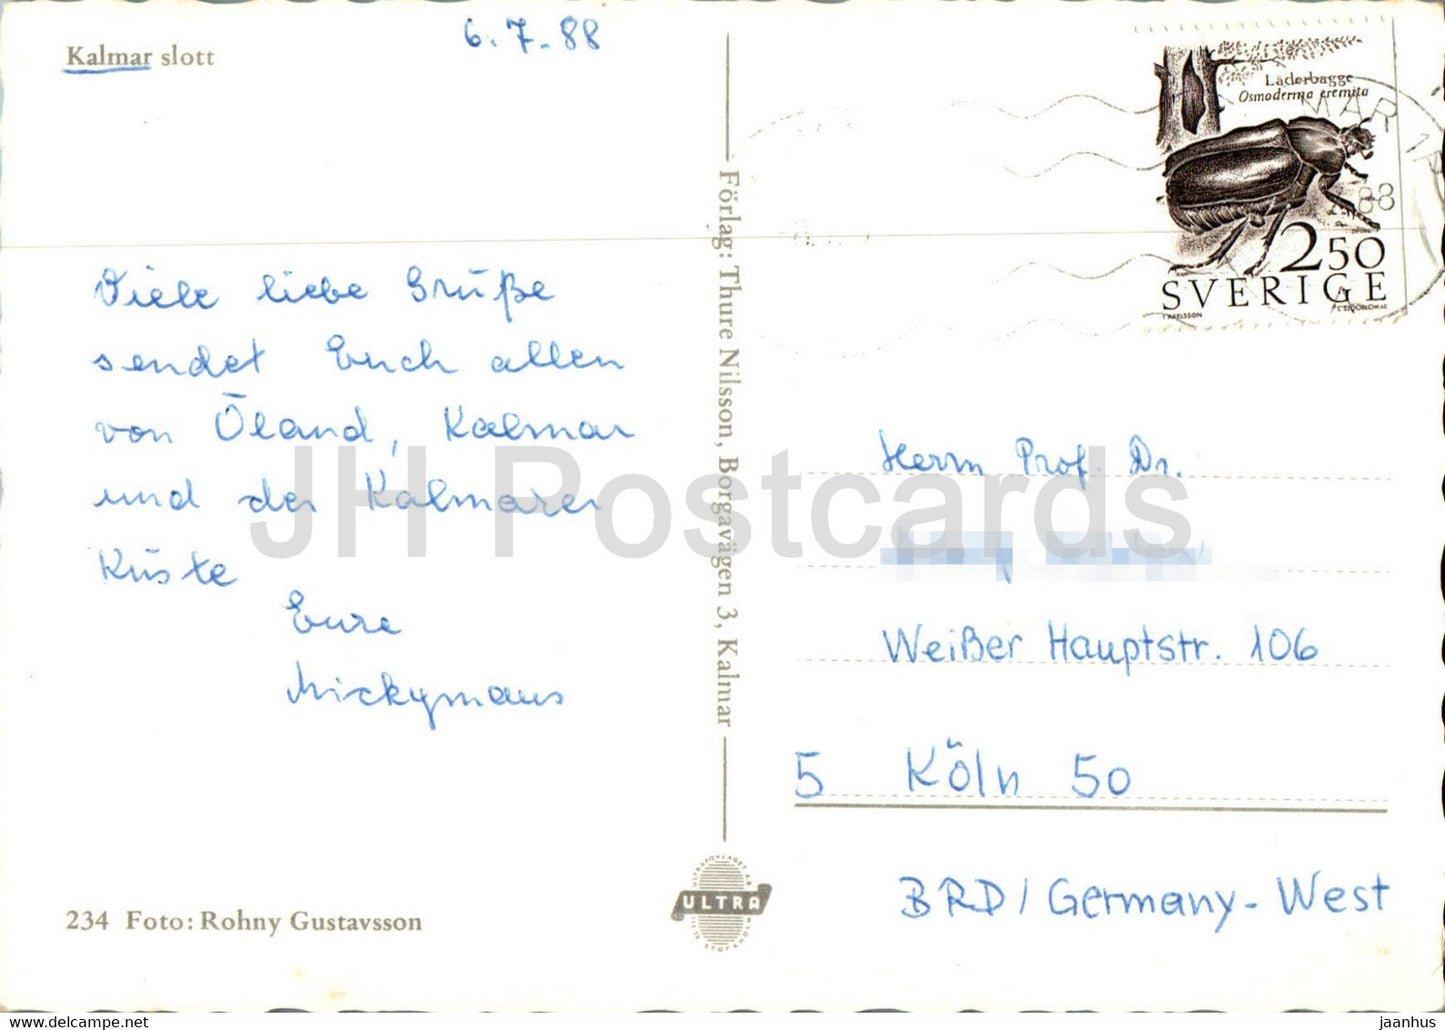 Kalmar slott
6.7.88
Läderbagge
Osmoderma eremita
MAR 1
88
2 50
SVERIGE
Viele liebe Grüße
sendet Euch allen
von Öland, Kalmar
und der Kalmarer
Küste
Eure
Mickymaus
Förlag: Thure Nilsson, Borgavägen 3, Kalmar
Herrn Prof. Dr.
Weißer Hauptstr. 106
5 Köln 50
BRD / Germany-West
234 Foto: Rohny Gustavsson
ULTRA
JH Postcards
jaanhus
https://www.hippostcard.com/store/jaanhus